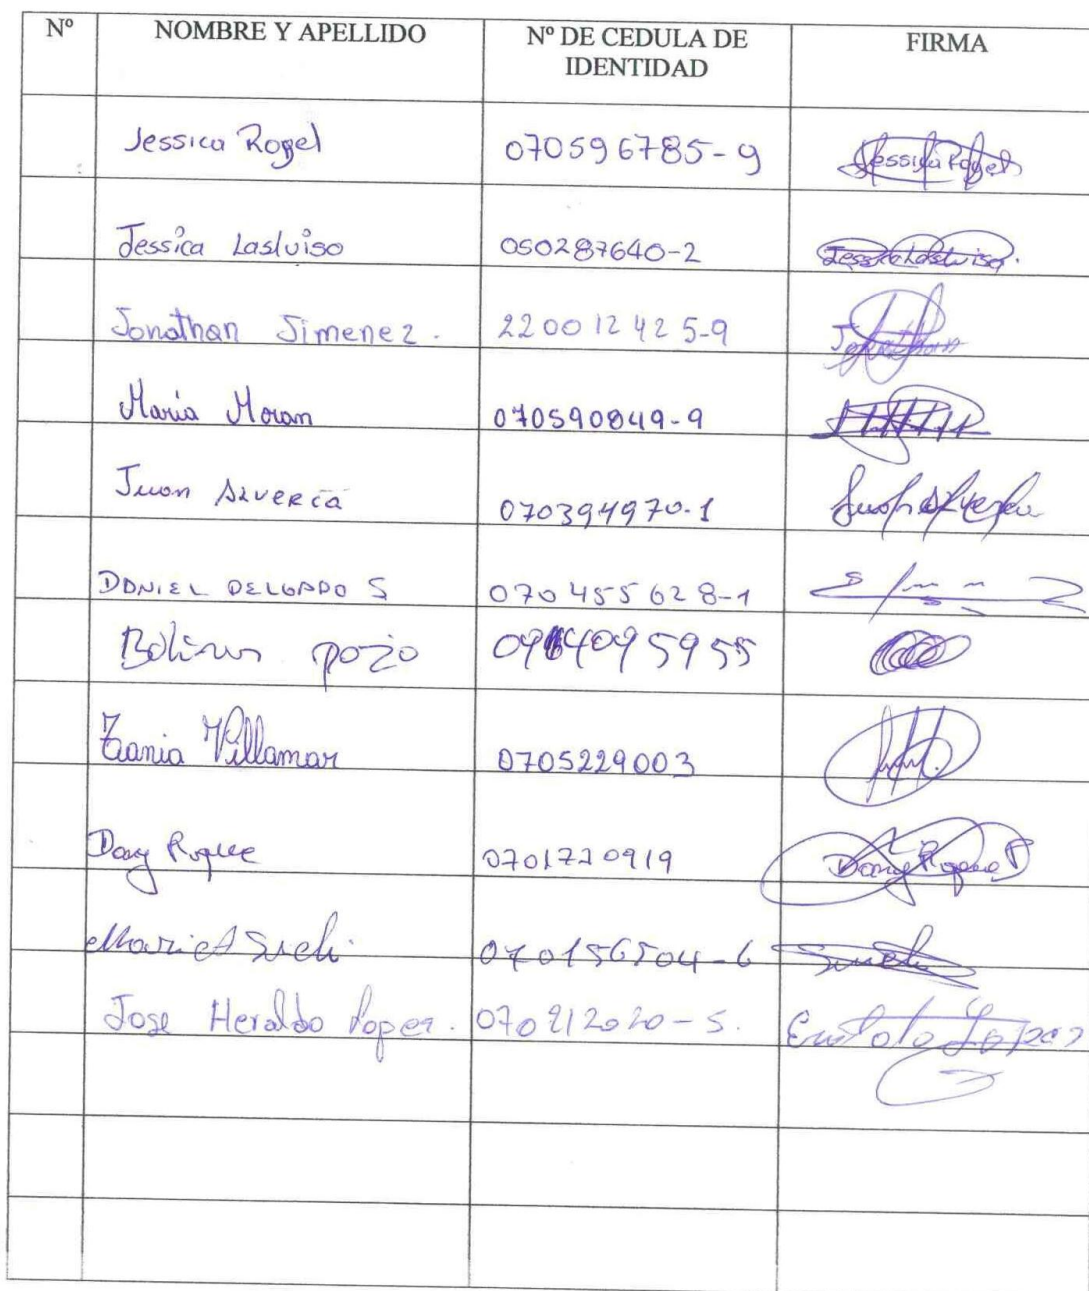 Nº NOMBRE Y APELLIDO Nº DE CEDULA DE IDENTIDAD FIRMA
Jessica Rogel 070596785-9 Jessica Rogel
Jessica Lasluiso 050287640-2 Jessica Lasluisa.
Jonathan Jimenez. 220012425-9 Jonathan
Maria Moran 070590849-9
Juan 070394970-1
DANIEL DELGADO S 070455628-1
pozo
Tania Villamar 0705229003
Dany Roque 0701720919 Dany Roque P
070156504-6
Jose Heraldo Lopez. 070212020-5. Lopez